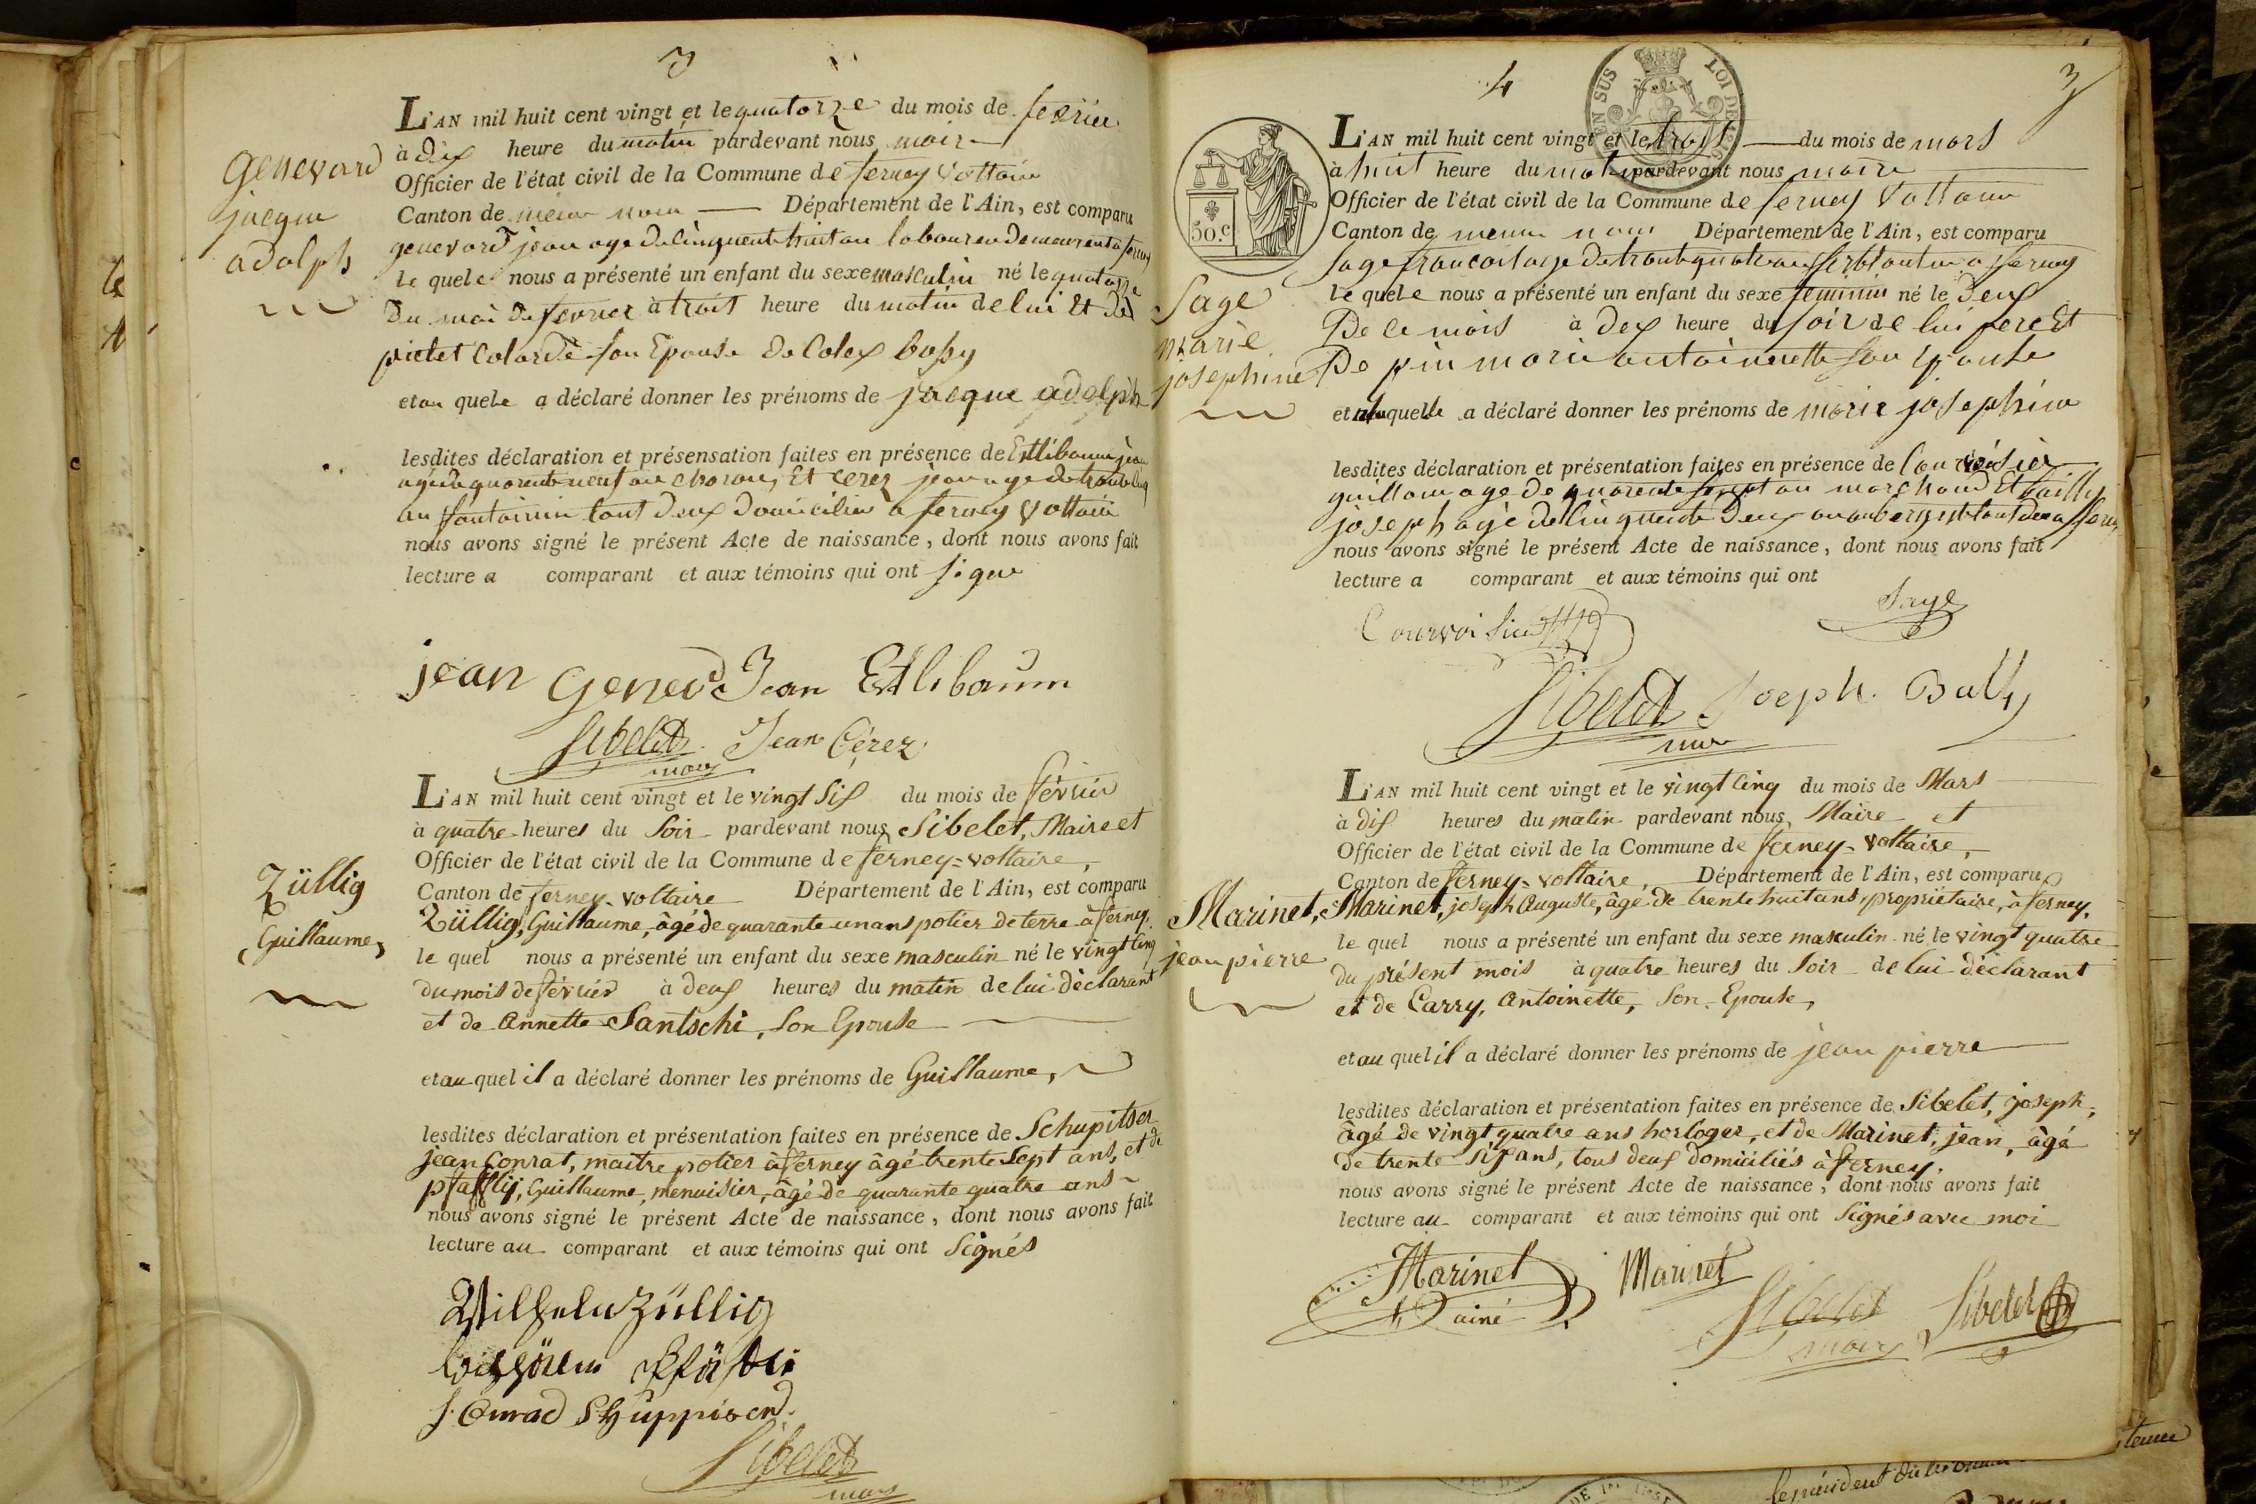 3
L'AN mil huit cent vingt et le quatorze du mois de fevrier
à dix heure du matin pardevant nous mair
Officier de l'état civil de la Commune de ferney Voltaire
Canton de meme nom Département de l'Ain, est comparu
genevard jean age de cinquente huit an laboureu demeurent a ferney
le quele nous a présenté un enfant du sexe masculin né le quatorze
Du moi De fevrier à trois heure du matin de lui et de
pictet Colarde son Epouse De Colex bossy
et au quele a déclaré donner les prénoms de jacque adolph
lesdites déclaration et présensation faites en présence de Ettlibaum jean
agé de quarente neuf an charon, Et Cerez jean age de trente cinq
an fontainier tout deux domicilier a ferney Voltaire
nous avons signé le présent Acte de naissance, dont nous avons fait
lecture a comparant et aux témoins qui ont signe
genevard
jacque
adolph
jean genevd Jean Ettlibaum
Sibelet Jean Cérez
maire
L'AN mil huit cent vingt et le vingt Six du mois de février
à quatre heures du Soir pardevant nous Sibelet, Maire et
Officier de l'état civil de la Commune de ferney-voltaire,
Canton de ferney-voltaire Département de l'Ain, est comparu
Züllig, Guillaume, âgé de quarante un ans potier de terre à ferney,
le quel nous a présenté un enfant du sexe masculin né le vingt Cinq
du mois de février à deux heures du matin de lui déclarant
et de Annette Santschi, Son Epouse
et au quel il a déclaré donner les prénoms de Guillaume,
lesdites déclaration et présentation faites en présence de Schupitser
jean Conrat, maitre potier à ferney âgé trente Sept ans, et de
pfafflij, Guillaume, menuisier, âgé de quarante quatre ans
nous avons signé le présent Acte de naissance, dont nous avons fait
lecture au comparant et aux témoins qui ont Signés
Züllig
Guillaume,
Wilhelm Züllig
Wilhälm Pfäfli
J. Conrad
Sibelet
maire
4
3
EN SUS LOI DE
50.c
L'AN mil huit cent vingt et le trois du mois de mars
à huit heure du matin pardevant nous maire
Officier de l'état civil de la Commune de ferney Voltaire
Canton de meme nom Département de l'Ain, est comparu
Sage francois age de trente quatre an ferblantier a ferney
le quele nous a présenté un enfant du sexe feminin né le deux
De ce mois à dex heure du soir de lui pere Et
De pin marie antoinette son Epouse
et a laquelle a déclaré donner les prénoms de marie josephine
lesdites déclaration et présentation faites en présence de Courvoisier
guillaume age de quarente sept an marchand Et bailly
joseph agé de cinquente Deux an aubergiste tout deux a ferney
nous avons signé le présent Acte de naissance, dont nous avons fait
lecture a comparant et aux témoins qui ont
Sage
marie
josephine
Sage
Courvoisier
Sibelet Joseph Bally
maire
L'AN mil huit cent vingt et le vingt Cinq du mois de Mars
à dix heures du matin pardevant nous, Maire et
Officier de l'état civil de la Commune de ferney-voltaire,
Canton de ferney-voltaire, Département de l'Ain, est comparu
Marinet, joseph Auguste, âgé de trente huit ans, propriétaire, à ferney,
le quel nous a présenté un enfant du sexe masculin né le vingt quatre
du présent mois à quatre heures du Soir de lui déclarant
et de Carry, Antoinette, Son Epouse,
et au quel il a déclaré donner les prénoms de jean pierre
lesdites déclaration et présentation faites en présence de Sibelet, joseph,
âgé de vingt quatre ans horloger, et de Marinet, jean, âgé
de trente Six ans, tous deux domiciliés à ferney.
nous avons signé le présent Acte de naissance, dont nous avons fait
lecture au comparant et aux témoins qui ont Signés avec moi
Marinet,
jean pierre
Marinet Marinet
ainé
Sibelet Sibelet
maire